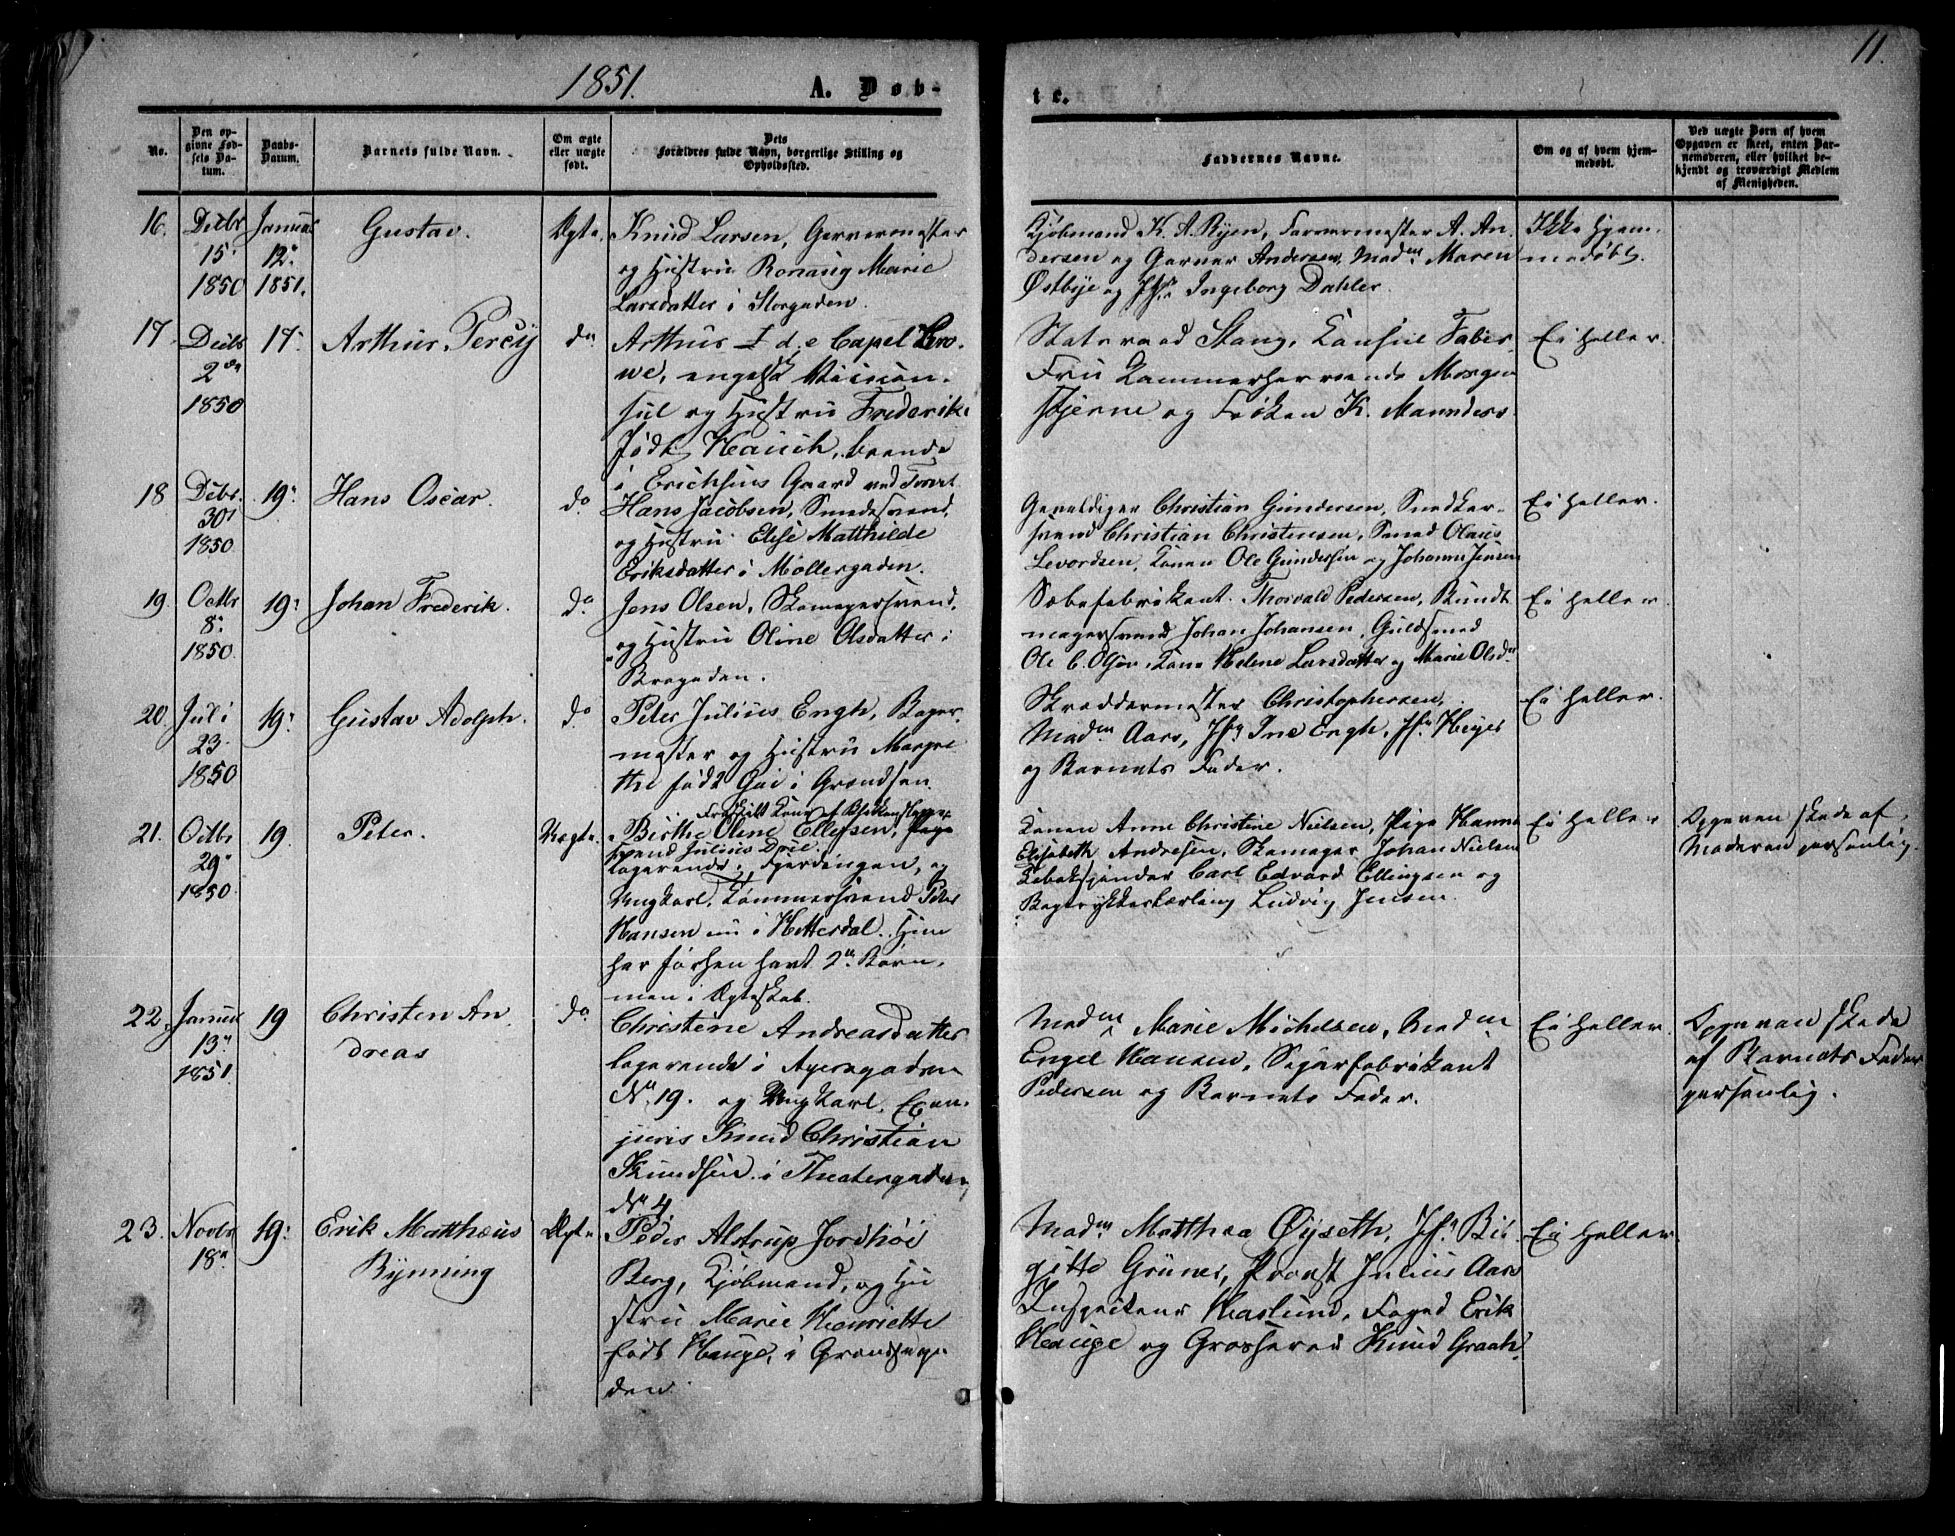 1851.
A. Døb-
te.
11.
No.
Den op-
givne Fød-
sels Da-
tum.
Daabs-
Datum.
Barnets fulde Navn.
Om ægte
eller uægte
født.
Dets
Forældres fulde Navn, borgerlige Stilling og
Opholdssted.
Faddernes Navne.
Om og af hvem hjem-
medøbt.
Ved uægte Børn af hvem
Opgaven er skeet, enten Bar-
nemoderen, eller hvilket be-
kjendt og troværdigt Medlem
af Menigheden.
16.
Decbr
15.
1850
Januar
12.
1851.
Gustav.
Ægte.
Knud Larsen, Garvermester
og Hustru Ronaug Marie
Larsdatter i Storgaden.
Kjøbmand K. A. Ryen, Farvermester A. An-
dersen og Garver Andersen, Madm Maren
Østbye og Jfr Ingeborg Dahler.
Ikke hjem-
medøbt.
17.
Decbr
2den
1850
17.
Arthur Percy
do
Arthur I d. e Capel Cro-
we, engelsk Vicecon-
sul og Hustru Frederike
født Hauch, boende
i Erichsens Gaard ved Torvet
Statsraad Stang, Consul Faber
Fru Kammerherreinde Morgen
stjerne og Frøken K. Maunders.
Ei heller.
18
Decbr.
30
1850.
19.
Hans Oscar.
do
Hans Jacobsen, Smedesvend,
og Hustru Elise Matthilde
Eriksdatter i Møllergaden.
Gevaldiger Christian Gundersen, Snedker-
svend Christian Christensen, Smed Olaus
Levordsen, Konen Ole Gundersen og Johanne Jensen
Ei heller.
19.
Octbr
8.
1850.
19.
Johan Frederik.
do
Jens Olsen, Skomagersvend,
og Hustru Oline Olsdatter i
Brogaden.
Sæbefabrikant Thorvald Pedersen, Bundt
magersvend Johan Johansen, Guldsmed
Ole C. Olsen, Kone Helene Larsdatter og Marie Olsdr
Ei heller.
20.
Juli
23.
1850
19.
Gustav Adolph.
do
Peter Julius Engh, Bager-
mester og Hustru Margre
the født Gai i Grændsen.
Skreddermester Christophersen,
Madm Aars, Jfr Ine Engh, Jfr Heyer
og Barnets Fader.
Ei heller.
21.
Octbr
29.
1850.
19.
Peter.
Uægte.
Birthe Oline Ellefsen, Pige
svend Julius
logerende i Fjerdingen, og
Ungkarl, Tømmersvend Peter
Hansen nu i Hitterdal. Hun
har forhen havt 2de Børn,
men i Ægteskab.
Konen Anne Christine Nielsen, Pige Hanna
Elisabeth Andresen, Skomager Johan Nielsen
Tobakspinder Carl Edvard Ellingsen og
Bogtrykkerlærling Ludvig Jensen.
Ei heller
Opgaven skede af
Moderen personlig.
22.
Januar
13.
1851.
19
Christen An
dreas
do
Christine Andreasdatter
logerende i Agersgaden
No. 19. og Ungkarl, Exam.
juris Knud Christian
Knudsen i Theatergaden
No 4.
Madm Marie Michelsen, Madm
Engel Hansen, Sigarfabrikant
Pedersen og Barnets Fader.
Ei heller.
Opgaven skede
af Barnets Fader
personlig.
23.
Novbr
18.
19.
Erik Matthæus
Rynning
Ægte
Peder Alstrup Jordhøi
Berg, Kjøbmand, og Hu
stru Marie Henriette
født Hauge, i Grændsega-
den.
Madm Matthea Øyseth, Jfr Bir-
gitte Grüner, Provst Julius Aars
Inspecteur Haslund, Foged Erik
Hauge og Grosserer Knud Graah.
Ei heller.